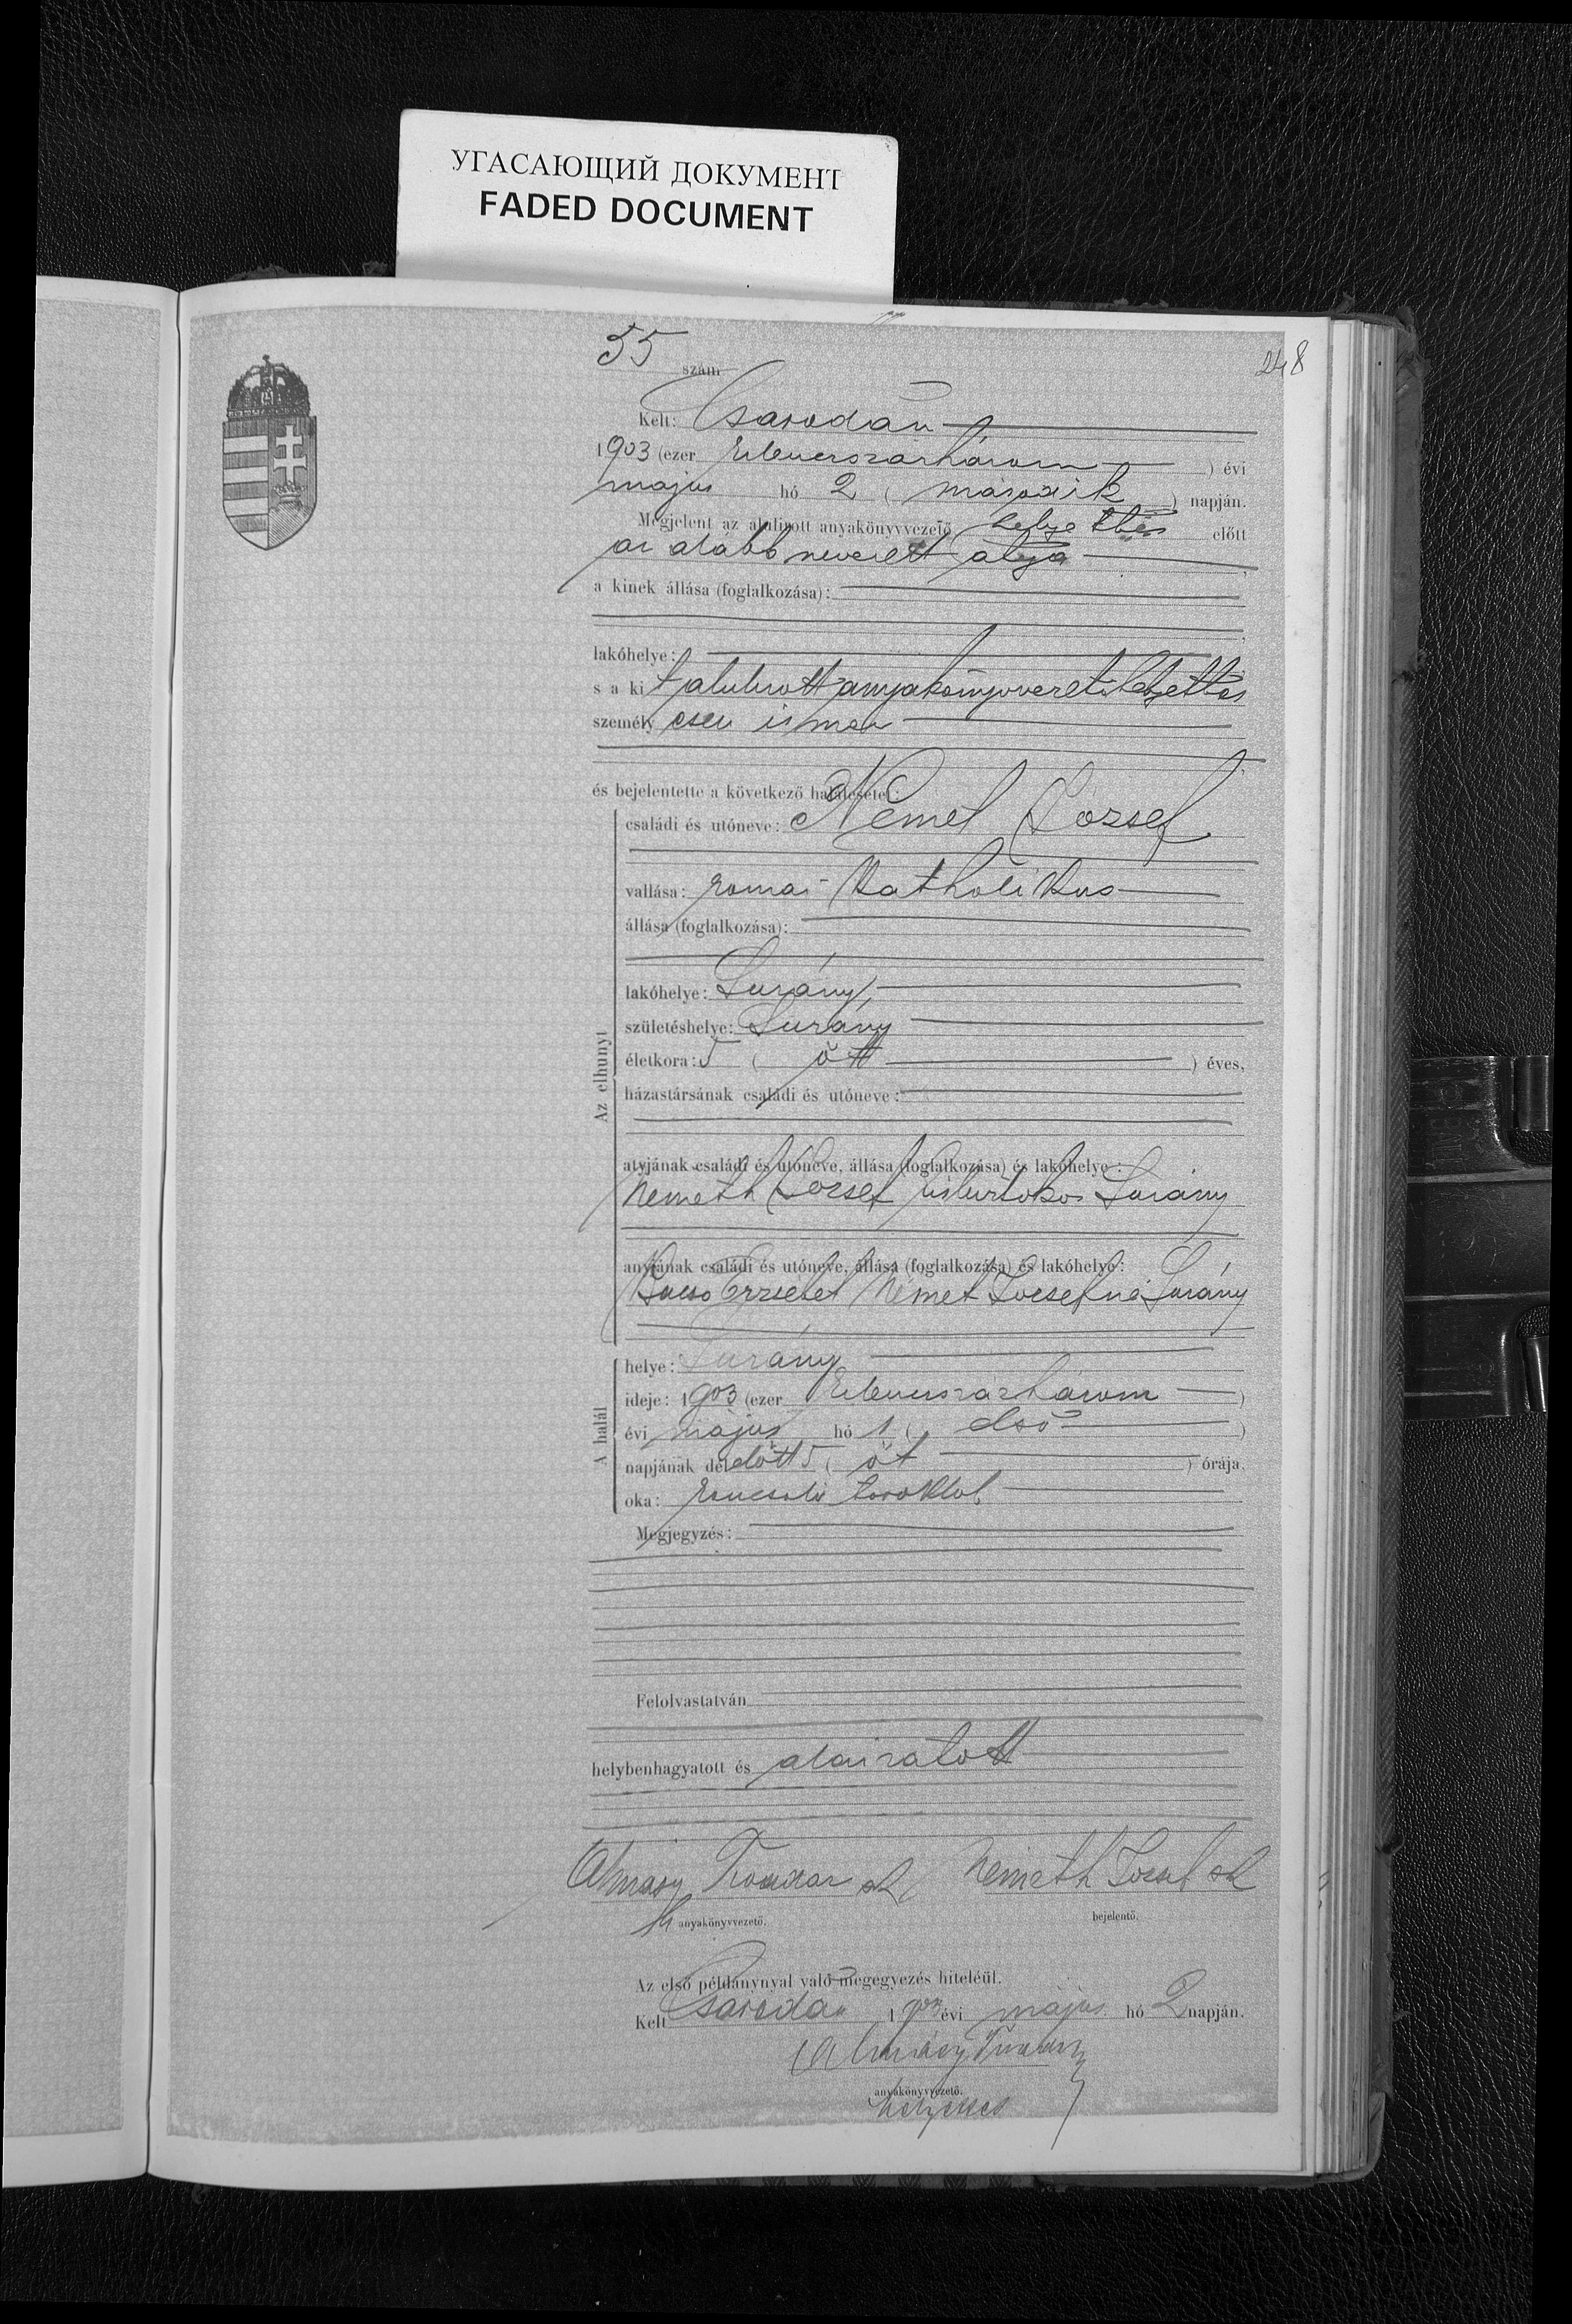 УГАСАЮЩИЙ ДОКУМЕНТ
FADED DOCUMENT
248
55 szám
Kelt: Csarodán
1903 (ezer kilenczszázhárom) évi
május hó 2 (második) napján.
Megjelent az alulirott anyakönyvvezető helyettes előtt
az alább nevezett atyja
a kinek állása (foglalkozása):
lakóhelye:
s a kit alulirott anyakönyvvezető helyettes
személyesen ismer
és bejelentette a következő halálesetet:
Az elhunyt
családi és utóneve: Német József
vallása: romai katholikus
állása (foglalkozása):
lakóhelye: Surány,
születéshelye: Surány
életkora: 5 (ött) éves,
házastársának családi és utóneve:
atyjának családi és utóneve, állása (foglalkozása) és lakóhelye:
Németh József kisbirtokos Surány
anyjának családi és utóneve, állása (foglalkozása) és lakóhelye:
Erzsébet Német Józsefné Surány
A halál
helye: Surány
ideje: 1903 (ezer kilenczszázhárom)
évi május hó 1 (első)
napjának délelőtt 5 (öt) órája.
oka: roncsoló toroklob
Megjegyzés:
Felolvastatván
helybenhagyatott és aláiratott
Almásy sk Németh József sk
h anyakönyvvezető. bejelentő.
Az első példánynyal való megegyezés hiteléül.
Kelt Csarodán 1903 évi május hó 2 napján.
Almásy
anyakönyvvezető.
helyettes